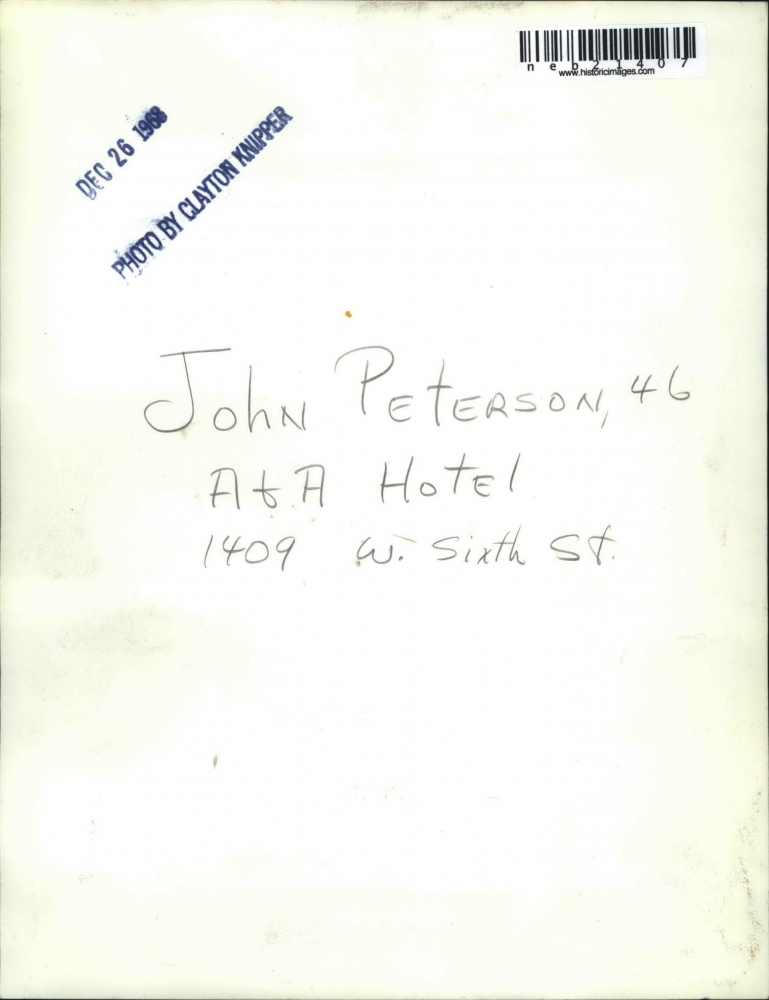 neb21407
www.historicimages.com
DEC 26 1968
PHOTO BY CLAYTON KNIPPER
John Peterson, 46
A & A Hotel
1409 W. Sixth St.